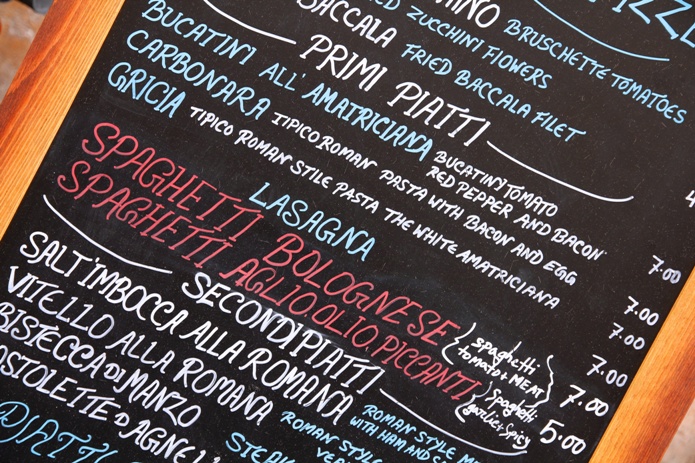 BRUSCHETTE TOMATOES
ZUCCHINI FLOWERS
BACCALA FRIED BACCALA FILET
PRIMI PIATTI
BUCATINI ALL'AMATRICIANA BUCATINY TOMATO
RED PEPPER AND BACON 7.00
CARBONARA TIPICO ROMAN PASTA WITH BACON AND EGG 7.00
GRICIA TIPICO ROMAN STILE PASTA THE WHITE AMATRICIANA 7.00
LASAGNA 7.00
SPAGHETTI BOLOGNESE {spaghetti tomato+MEAT} 7.00
SPAGHETTI AGLIO OLIO PICCANTI {spaghetti garlic+spicy 5.00
SECONDI PIATTI
SALT'IMBOCCA ALLA ROMANA ROMAN STYLE
WITH HAM AND
VITELLO ALLA ROMANA ROMAN STYLE
BISTECCA DI MANZO